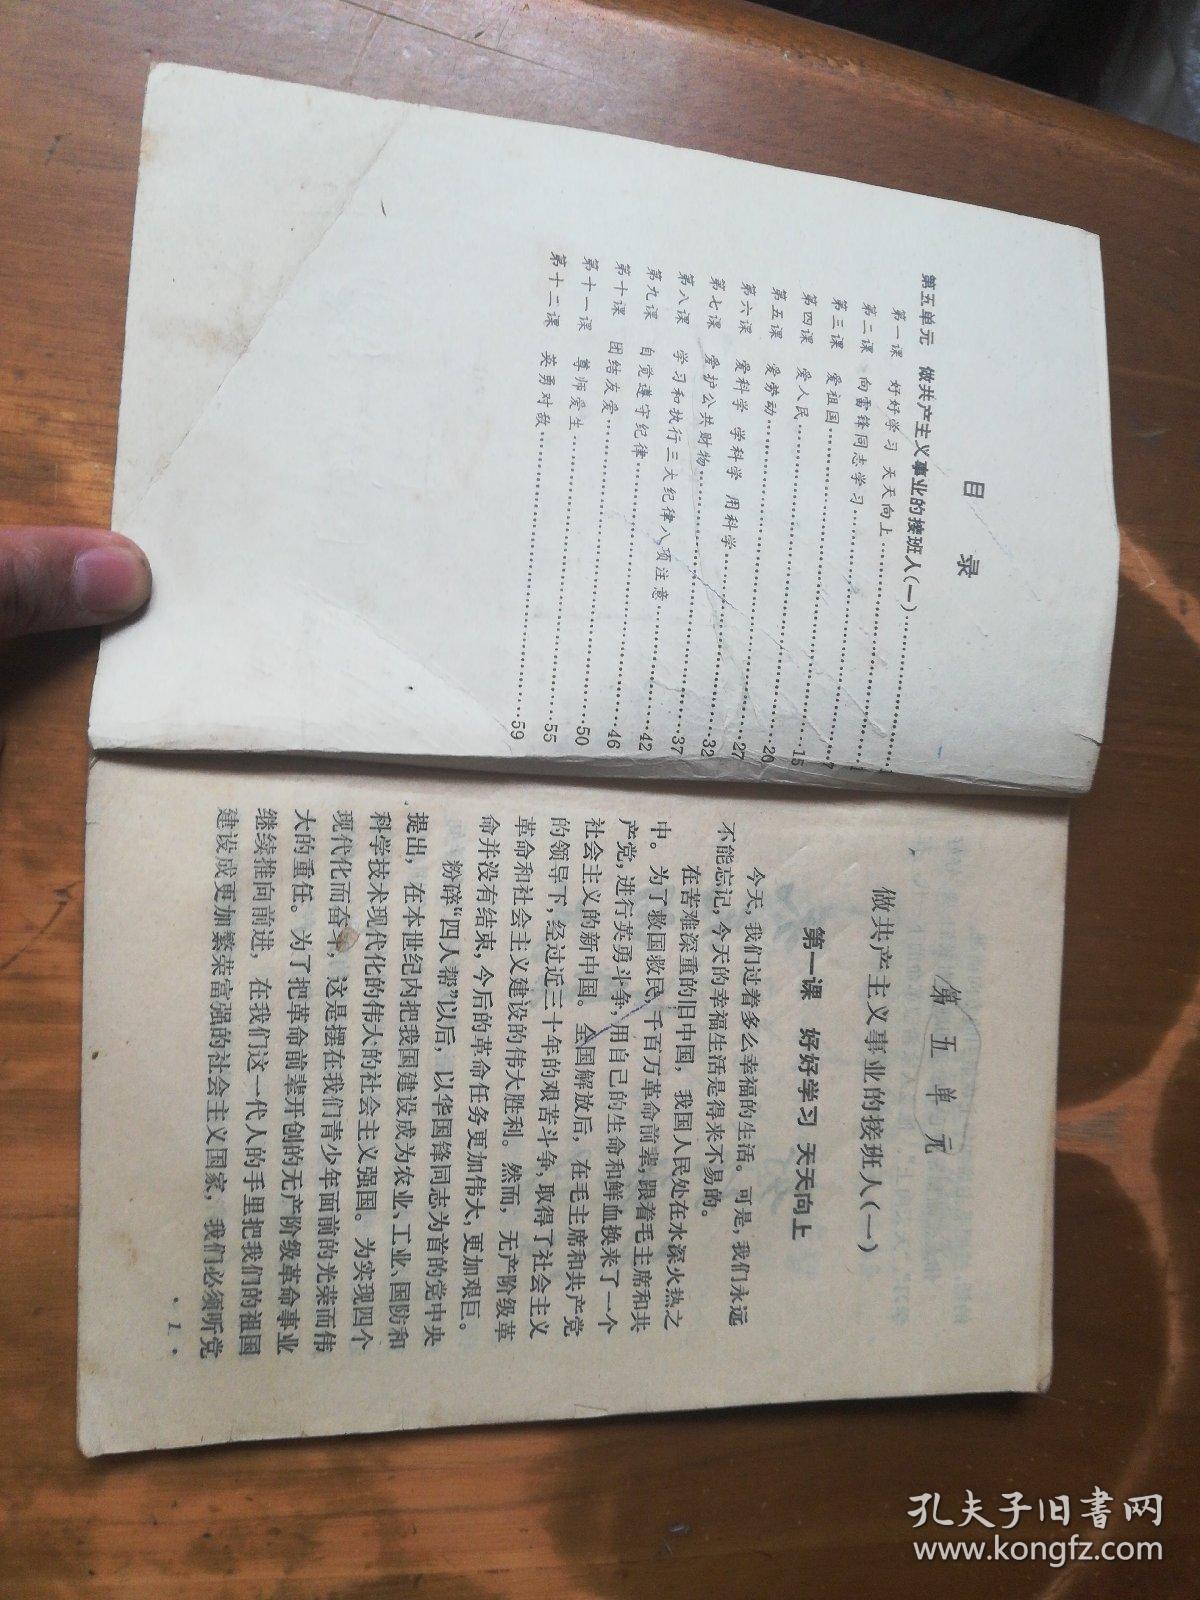 目 录
第五单元 做共产主义事业的接班人(一)……………………1
第一课 好好学习 天天向上……………………1
第二课 向雷锋同志学习……………………7
第三课 爱祖国……………………15
第四课 爱人民……………………20
第五课 爱劳动……………………27
第六课 爱科学 学科学 用科学……………………32
第七课 爱护公共财物……………………37
第八课 学习和执行三大纪律八项注意……………………42
第九课 自觉遵守纪律……………………46
第十课 团结友爱……………………50
第十一课 尊师爱生……………………55
第十二课 英勇对敌……………………59
第五单元
做共产主义事业的接班人(一)
第一课 好好学习 天天向上
今天,我们过着多么幸福的生活。可是,我们永远
不能忘记,今天的幸福生活是得来不易的。
在苦难深重的旧中国,我国人民处在水深火热之
中。为了救国救民,千百万革命前辈,跟着毛主席和共
产党,进行英勇斗争,用自己的生命和鲜血换来了一个
社会主义的新中国。全国解放后,在毛主席和共产党
的领导下,经过近三十年的艰苦斗争,取得了社会主义
革命和社会主义建设的伟大胜利。然而,无产阶级革
命并没有结束,今后的革命任务更加伟大,更加艰巨。
粉碎“四人帮”以后,以华国锋同志为首的党中央
提出,在本世纪内把我国建设成为农业、工业、国防和
科学技术现代化的伟大的社会主义强国。为实现四个
现代化而奋斗,这是摆在我们青少年面前的光荣而伟
大的重任。为了把革命前辈开创的无产阶级革命事业
继续推向前进,在我们这一代人的手里把我们的祖国
建设成更加繁荣富强的社会主义国家,我们必须听党
· 1 ·
孔夫子旧书网
www.kongfz.com